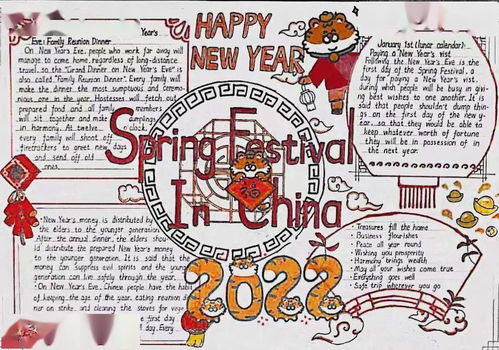 Year's
Eve: Family Reunion Dinner
On New Year's Eve, people who work far away will
manage to come home, regardless of long-distance
travel, so the "Grand Dinner on New Year's Eve" is
also called "Family Reunion Dinner". Every family will
make the dinner the most sumptuous and ceremo-
nious one in the year. Hostesses will fetch out
prepared food and all family members
will sit together and make dumplings
in harmony. At twelve o'clock,
every family will shoot off
firecrackers to greet new days
and send off old
ones.
HAPPY
NEW YEAR
January 1st (lunar calendar):
Paying a New Year's visit
Following the New Year's Eve is the
first day of the Spring Festival, a
day for paying a New Year's visit,
during which people will be busy in giv-
ing best wishes to one another. It is
said that people shouldn't dump thi-
ngs on the first day of the new ye-
ar, so that they would be able to
keep whatever worth of fortune
they will be in possession of in
the next year.
Spring Festival
福
In China
2022
• New Year's money is distributed by
the elders to the younger generation.
After the annual dinner, the elders shou-
ld distribute the prepared New Year's money
to the younger generation. It is said that the
money can suppress evil spirits and the younger
generation can live safely through the
• On New Year's Eve, Chinese people have the habit
of keeping the age of the year, eating reunion di-
nner on
first day
day. Every
• Treasures fill the home
• Business flourishes
• Peace all year round
• Wishing you prosperity
• Harmony brings wealth
• May all your wishes come true
• Everything goes well
• Safe trip wherever you go